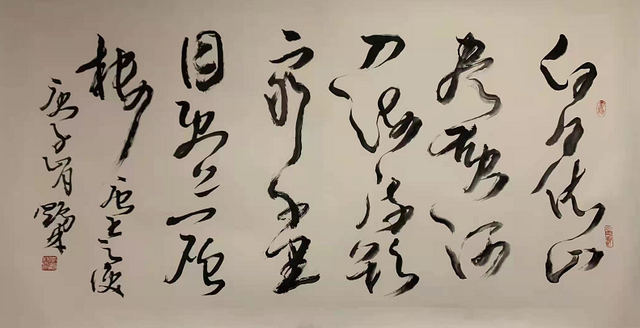 白日依山
尽黄河
入海流欲
穷千里
目更上一层
楼 唐王之涣
庚子